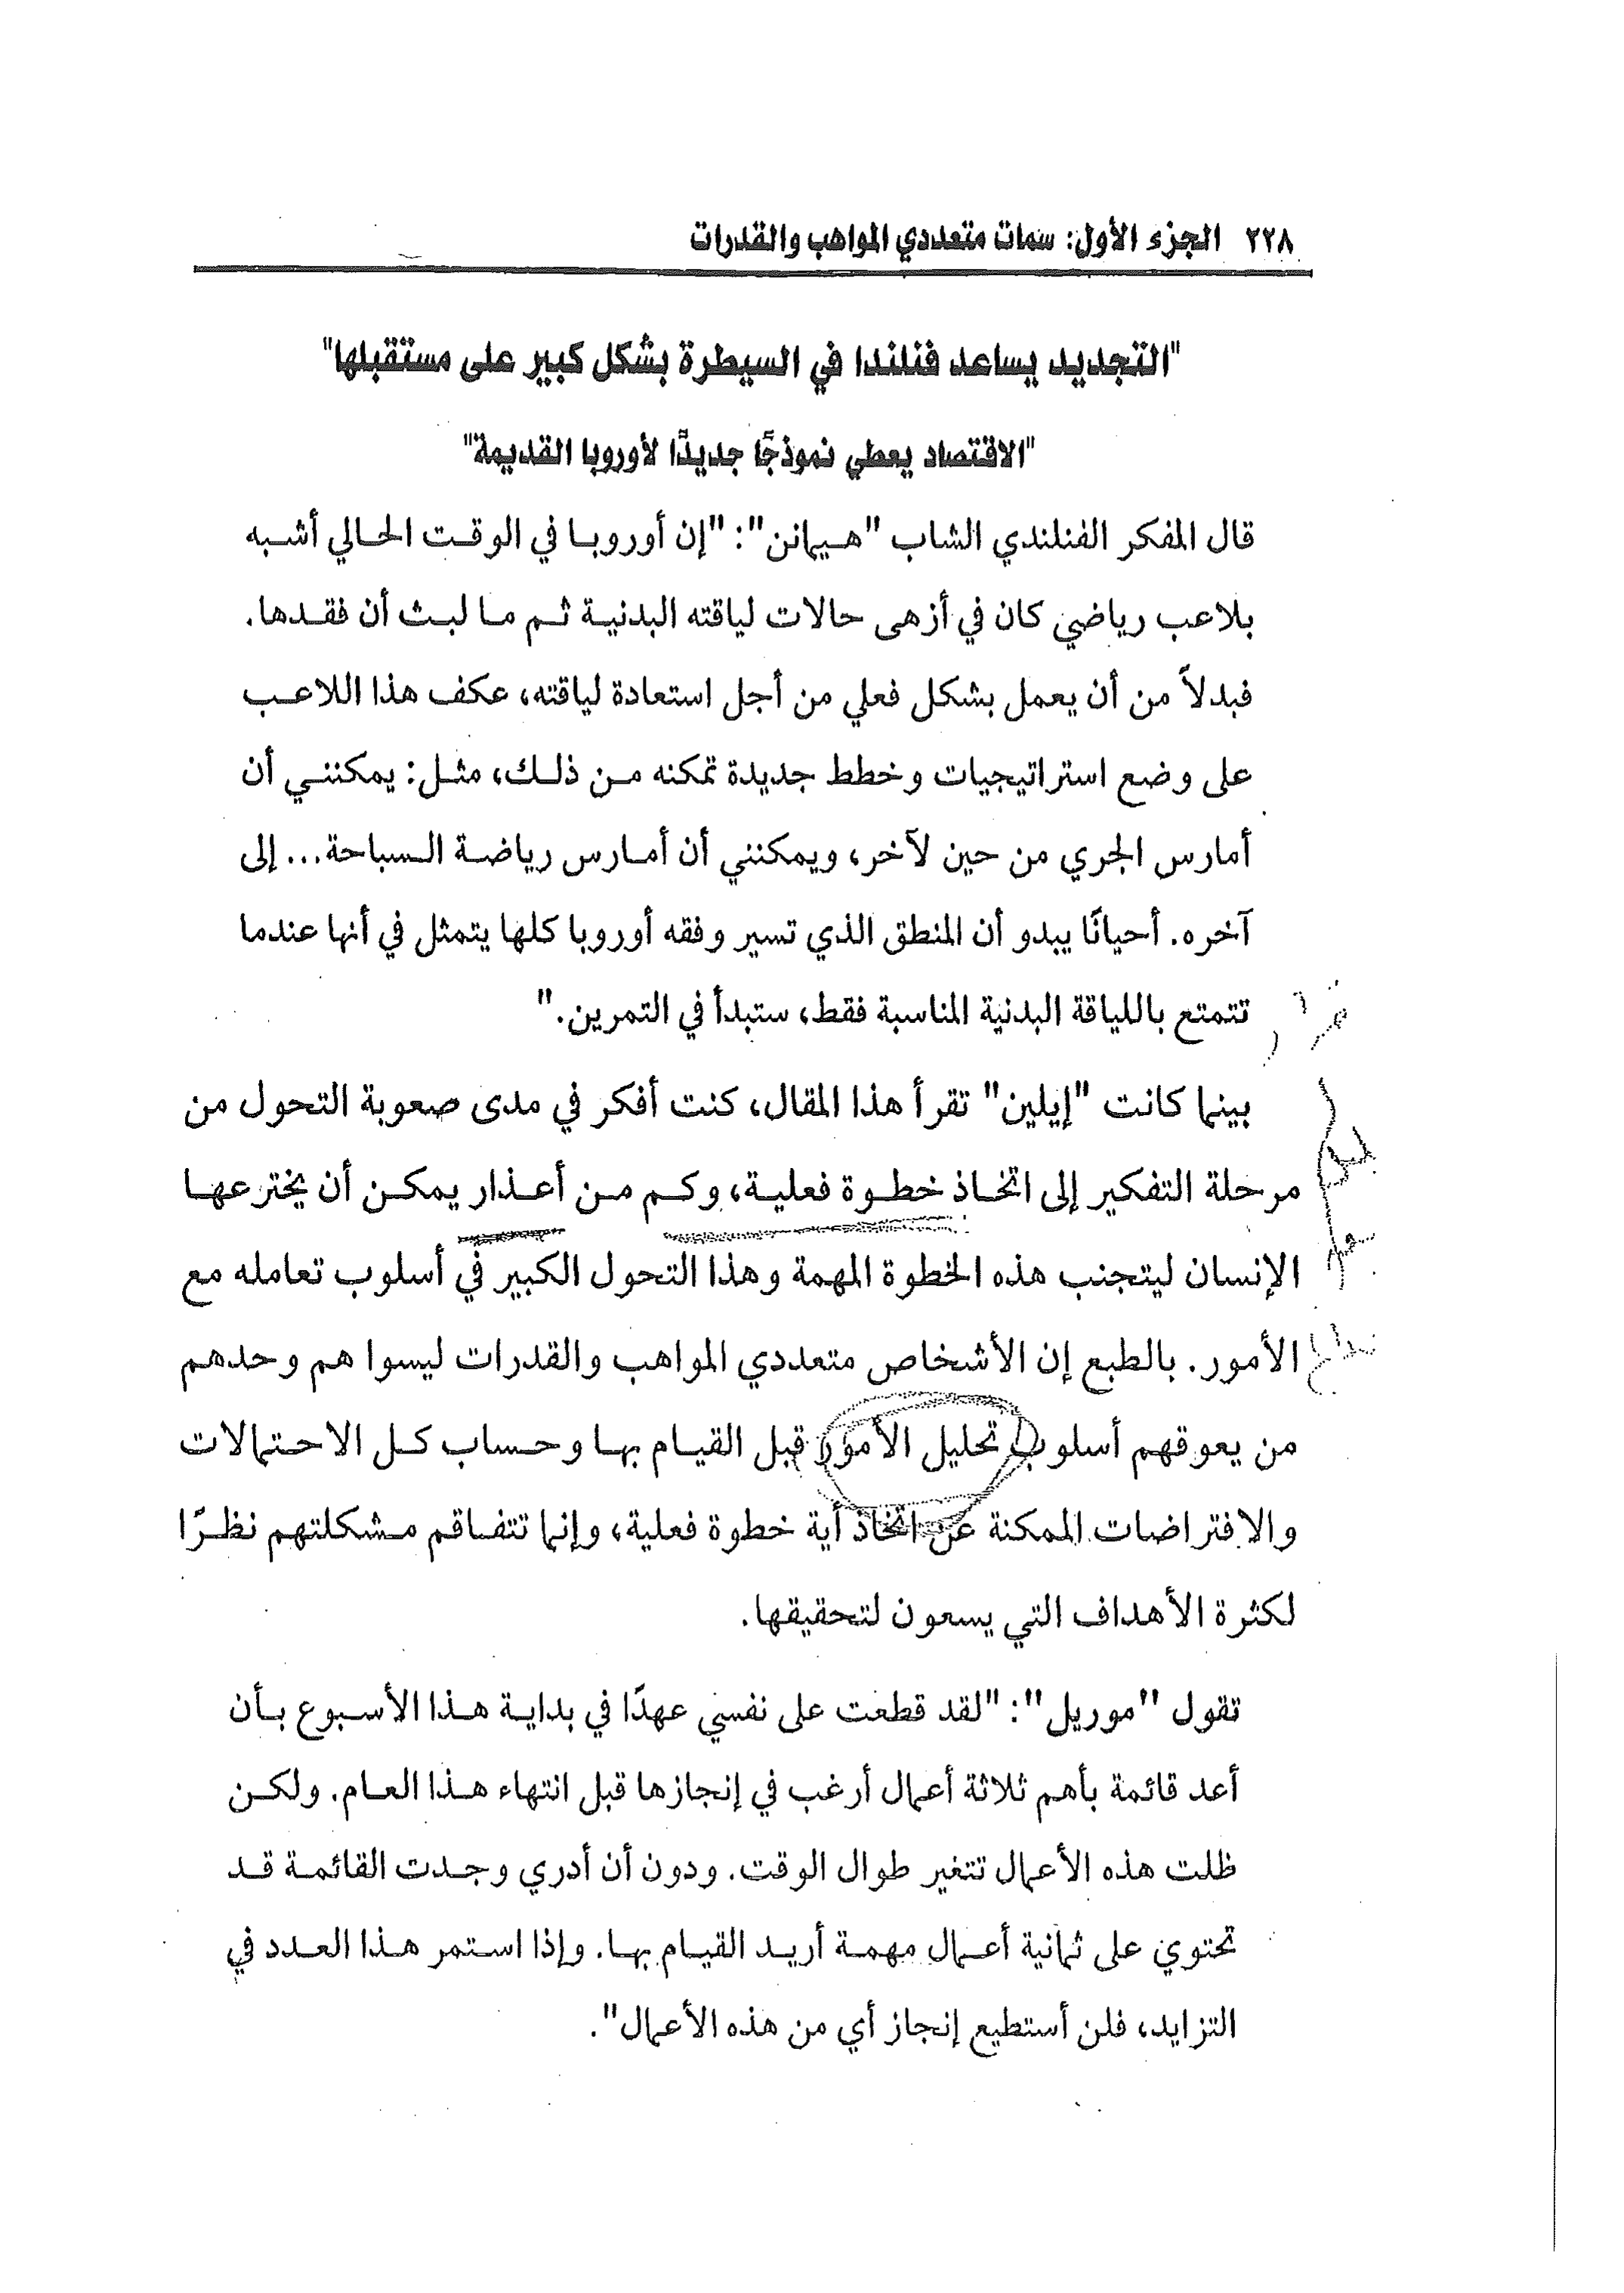 ٢٢٨ الجزء الأول: سمات متعددي المواهب والقدرات
"التجديد يساعد فنلندا في السيطرة بشكل كبير على مستقبلها"
"الاقتصاد يعطي نموذجًا جديدًا لأوروبا القديمة"
قال المفكر الفنلندي الشاب "هيمانن": "إن أوروبا في الوقت الحالي أشبه
بلاعب رياضي كان في أزهى حالات لياقته البدنية ثم ما لبث أن فقدها.
فبدلاً من أن يعمل بشكل فعلي من أجل استعادة لياقته، عكف هذا اللاعب
على وضع استراتيجيات وخطط جديدة تمكنه من ذلك، مثل: يمكنني أن
أمارس الجري من حين لآخر، ويمكنني أن أمارس رياضة السباحة... إلى
آخره. أحيانًا يبدو أن المنطق الذي تسير وفقه أوروبا كلها يتمثل في أنها عندما
تتمتع باللياقة البدنية المناسبة فقط، ستبدأ في التمرين."
بينما كانت "إيلين" تقرأ هذا المقال، كنت أفكر في مدى صعوبة التحول من
مرحلة التفكير إلى اتخاذ خطوة فعلية، وكم من أعذار يمكن أن يخترعها
الإنسان ليتجنب هذه الخطوة المهمة وهذا التحول الكبير في أسلوب تعامله مع
الأمور. بالطبع إن الأشخاص متعددي المواهب والقدرات ليسوا هم وحدهم
من يعوقهم أسلوب تحليل الأمور قبل القيام بها وحساب كل الاحتمالات
والافتراضات الممكنة عن اتخاذ أية خطوة فعلية، وإنما تتفاقم مشكلتهم نظرًا
لكثرة الأهداف التي يسعون لتحقيقها.
تقول "موريل": "لقد قطعت على نفسي عهدًا في بداية هذا الأسبوع بأن
أعد قائمة بأهم ثلاثة أعمال أرغب في إنجازها قبل انتهاء هذا العام. ولكن
ظلت هذه الأعمال تتغير طوال الوقت. ودون أن أدري وجدت القائمة قد
تحتوي على ثمانية أعمال مهمة أريد القيام بها. وإذا استمر هذا العدد في
التزايد، فلن أستطيع إنجاز أي من هذه الأعمال".